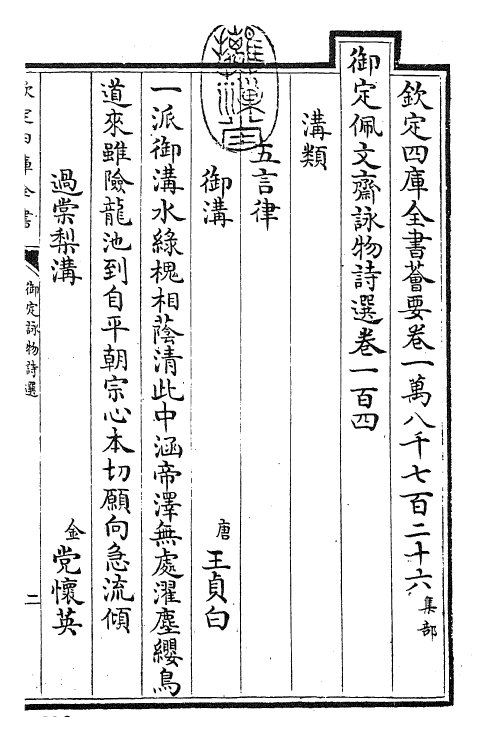 欽定四庫全書薈要卷一萬八千七百二十六 集部
御定佩文齋詠物詩選卷一百四
溝類
五言律
御溝 唐 王貞白
一派御溝水綠槐相蔭清此中涵帝澤無處濯塵纓鳥
道來雖險龍池到自平朝宗心本切願向急流傾
過棠梨溝 金 党懷英
欽定四庫全書
御定詠物詩選
二